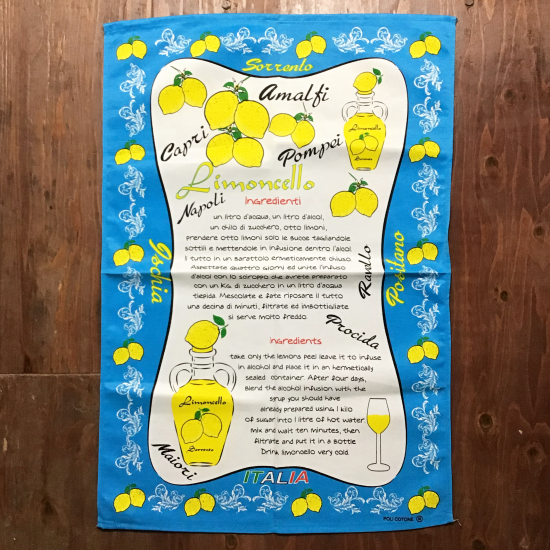 Sorrento
Amalfi
Capri
Pompei
Limoncello
Sorrento
Limoncello
Napoli
Ingredienti
un litro d'acqua, un litro d'alcol,
un chilo di zucchero, otto limoni,
prendere otto limoni solo le bucce tagliandole
sottili e mettendole in infusione dentro l'alcol
il tutto in un barattolo ermeticamente chiuso.
Aspettate quattro giorni ed unite l'infuso
d'alcol con lo sciroppo che avrete preparato
con un kg. di zucchero in un litro d'acqua
tiepida. Mescolate e fate riposare il tutto
una decina di minuti, filtrate ed imbottigliate
si serve molto freddo.
Ischia
Ravello
Posilano
Procida
Ingredients
take only the lemons peel leave it to infuse
in alcohol and place it in an hermetically
sealed container. After four days,
blend the alcohol infusion with the
syrup you should have
already prepared using 1 kilo
of sugar into 1 litre of hot water.
Mix and wait ten minutes, then
filtrate and put it in a bottle
Drink limoncello very cold.
Limoncello
Sorrento
Maiori
ITALIA
POLI COTONE